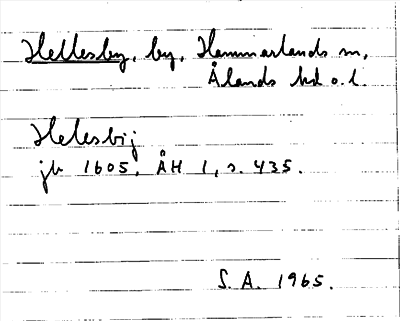 Hellesby, by, Hammarlands sn,
Ålands hd o. l.
Helesbij
jb 1605, ÅH 1, s. 435.
S. A. 1965.